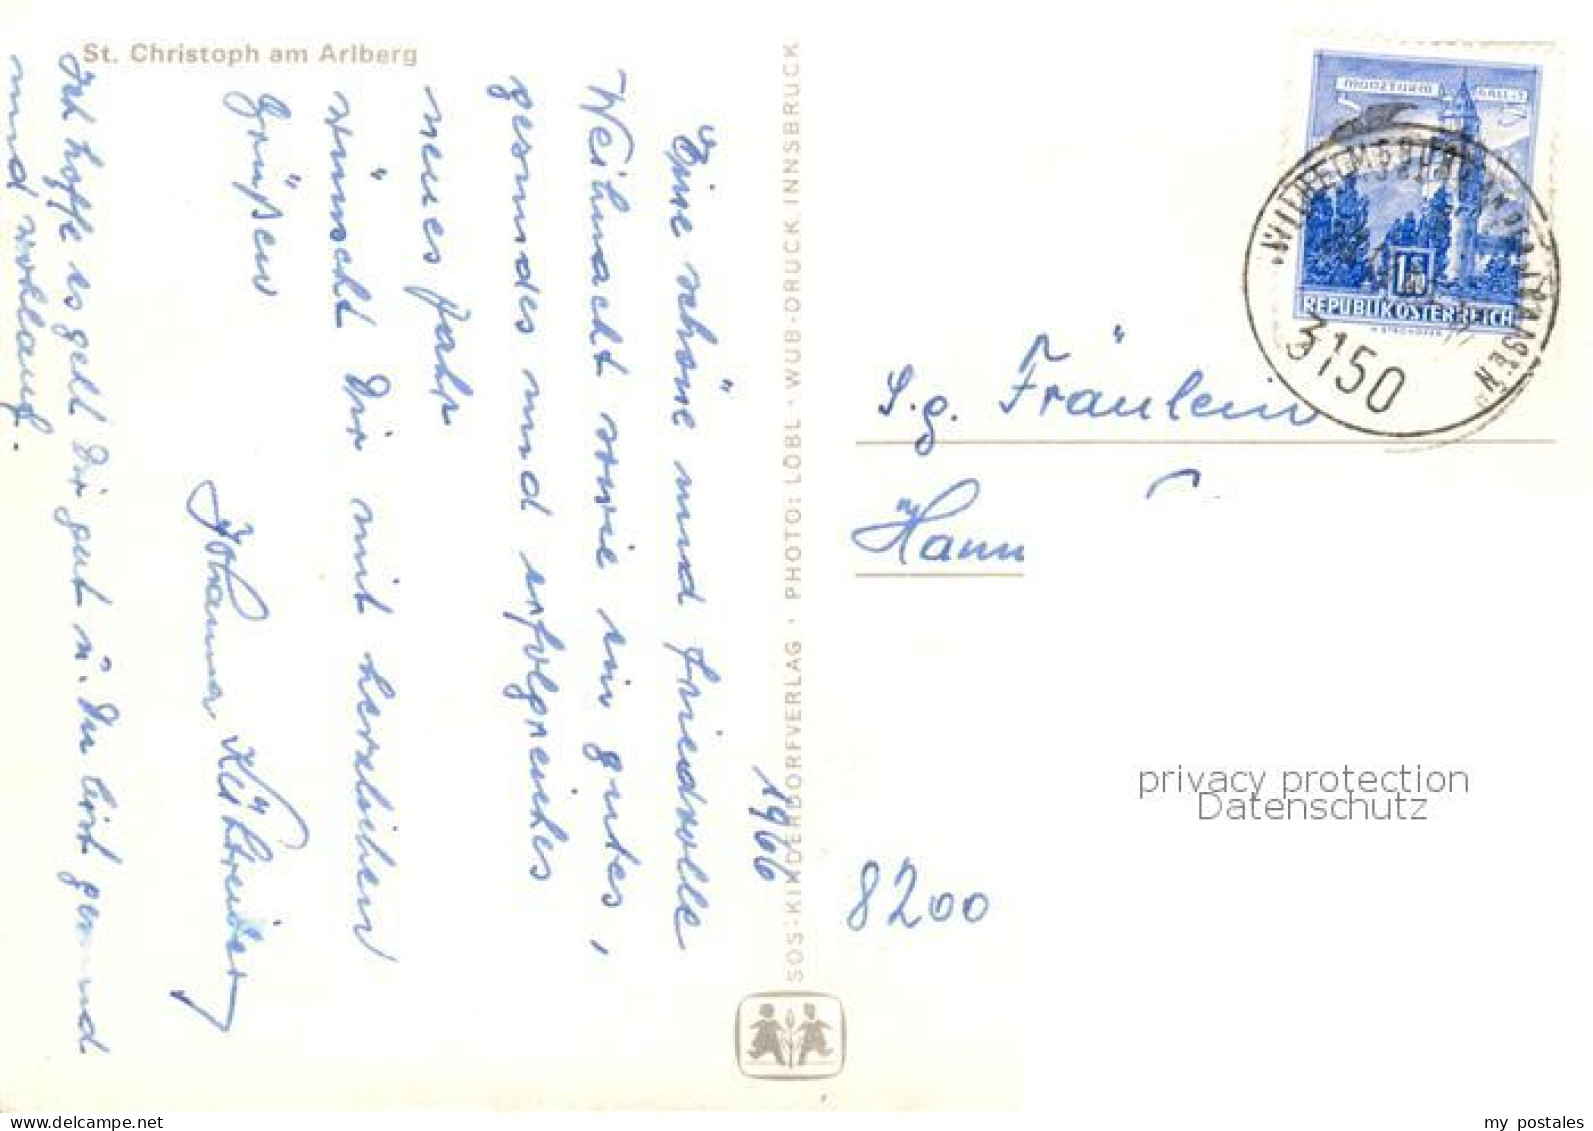 St. Christoph am Arlberg
1966
Eine schöne und friedvolle
Weihnacht sowie ein gutes,
gesundes und erfolgreiches
neues Jahr
wünscht Dir mit herzlichen
Grüßen
Johanna
Ich hoffe es geht Dir gut u. Du bist gesund
und wohlauf.
SOS: KINDERDORFVERLAG · PHOTO: LÖBL · WUB-DRUCK INNSBRUCK
MÜNZTURM HALL I. T.
1.50 S
REPUBLIK ÖSTERREICH
WILHELMSBURG AN DER TRAISEN
3150
S.g. Fräulein
Hann
8200
privacy protection
Datenschutz
my_postales